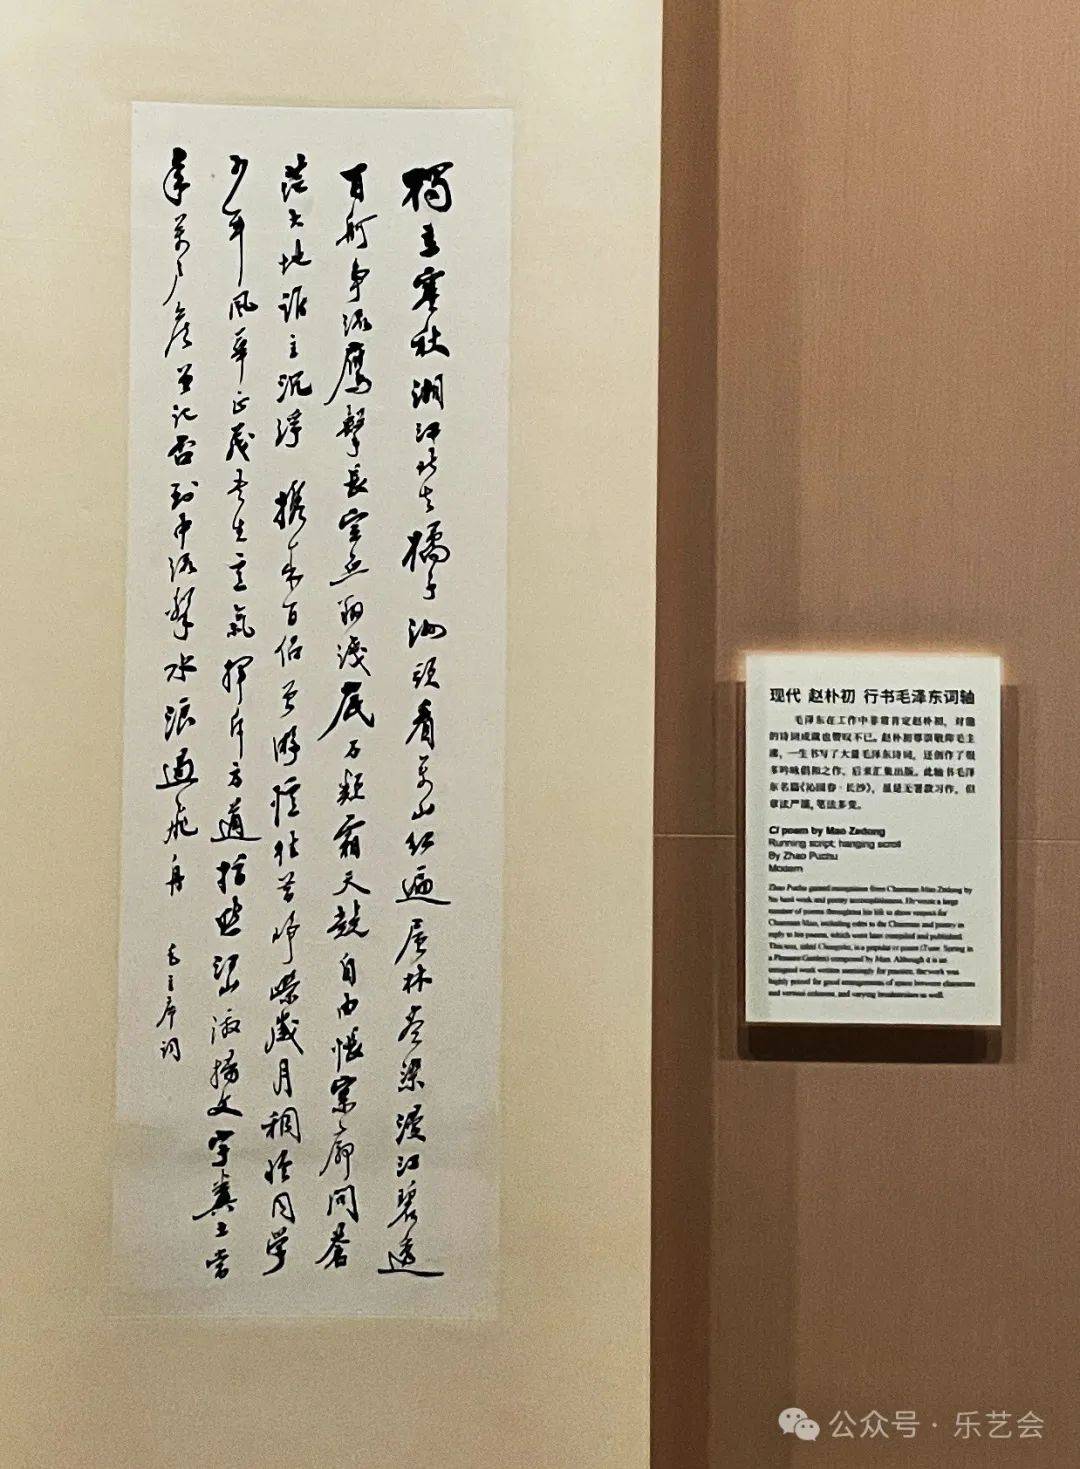 獨立寒秋湘江北去橘子洲頭看萬山紅遍層林盡染漫江碧透
百舸爭流鷹擊長空魚翔淺底万類霜天競自由悵寥廓問蒼
茫大地誰主沉浮 攜來百侶曾游憶往昔崢嶸歲月稠恰同學
少年風華正茂書生意氣揮斥方遒指點江山激揚文字糞土當
年萬户侯曾記否到中流擊水浪遏飛舟
毛主席词
现代 赵朴初 行书毛泽东词轴
毛泽东在工作中非常肯定赵朴初，对他
的诗词成就也赞叹不已。赵朴初尊崇敬仰毛主
席，一生书写了大量毛泽东诗词，还创作了很
多吟咏倡和之作，后来汇集出版。此轴书毛泽
东名篇《沁园春·长沙》，虽是无署款习作，但
章法严谨，笔法多变。
Ci poem by Mao Zedong
Running script, hanging scroll
By Zhao Puchu
Modern
Zhao Puchu gained recognition from Chairman Mao Zedong by
his hard work and poetry accomplishments. He wrote a large
number of poems throughout his life to show respect for
Chairman Mao, including odes to the Chairman and poetry in
reply to his poems, which were later compiled and published.
This one, titled Changsha, is a popular ci poem (Tune: Spring in
a Pleasure Garden) composed by Mao. Although it is an
unsigned work written seemingly for practice, the work was
highly prized for good arrangements of space between characters
and vertical columns, and varying brushstrokes as well.
公众号·乐艺会